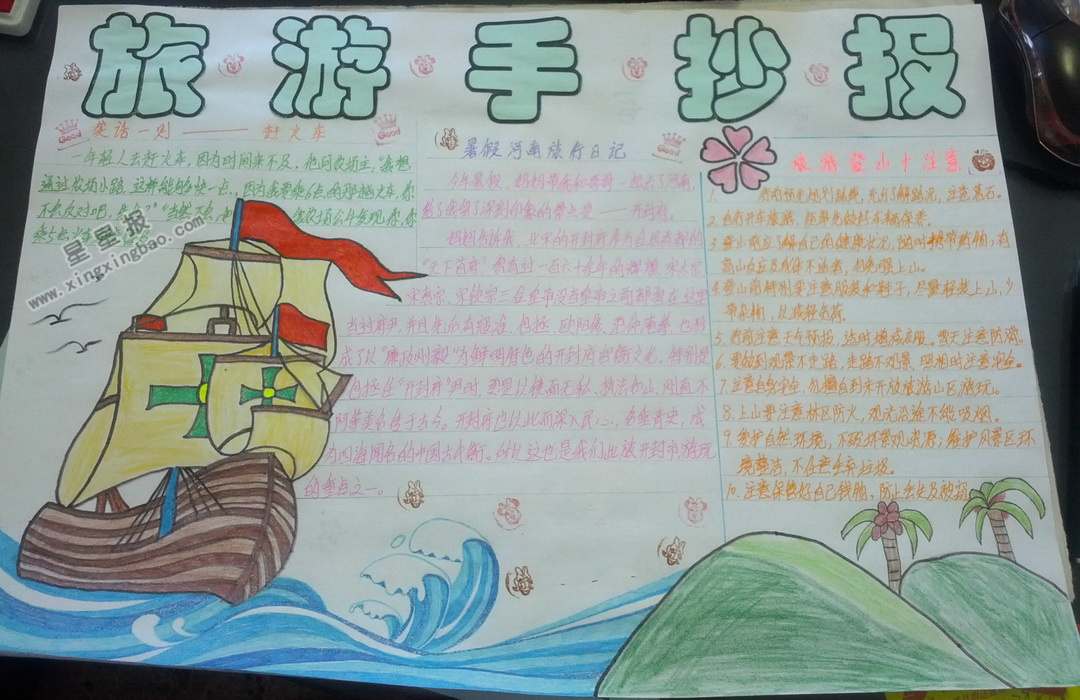 旅游手抄报
笑话一则——赶火车
一年轻人去赶火车，因为时间来不及，他问农场主：“我想
通过农场小路，这样能够快一点，因为我要乘6点的那趟火车，你
不会反对吧，先生？”“当然不会
星星报
www.xingxingbao.com
Good
Good
暑假河南旅行日记
Good
今年暑假，妈妈带我和哥哥一起去了河南，
给了我留了深刻印象的景点是——开封府。
妈妈告诉我，北宋的开封府
“天下首府”，
宋真宗、宋钦宗三位皇帝没当皇帝之前都曾在这里
当过府尹，并且先后有寇准、包拯、欧阳修、范仲淹等，也形
成了以“廉政刚毅”为鲜明特色的开封府官衙文化，特别是
包拯在“开封府”尹时，更是以铁面无私、执法如山、刚直不
阿等美名传于古今。开封府也以此而深入民心、名垂青史，成
为四海闻名的中国古代衙。所以这也是我们此旅开封市游玩
的重点之一。
旅游登山十注意
1. 游前预先规划路线，先了解路况，注意落石。
2. 自行开车旅游，
3. 登山前应了解自己的健康状况，随时携带药物，有
高山反应及身体不适者，勿勉强上山。
4. 登山前特别要注意服装和鞋子，尽量轻装上山，少
带杂物，以减轻负荷。
5. 行前注意天气预报，适时增减衣服。雪天注意防滑。
6. 要做到观景不走路，走路不观景，照相时注意安全。
7. 注意自身安全，勿擅自到未开放旅游山区游玩。
8. 上山要注意林区防火，观光沿途不能吸烟。
9. 爱护自然环境，不破坏景观资源；维护风景区环
境整洁，不任意丢弃垃圾。
10. 注意保管好自己钱物，防止丢失及被窃